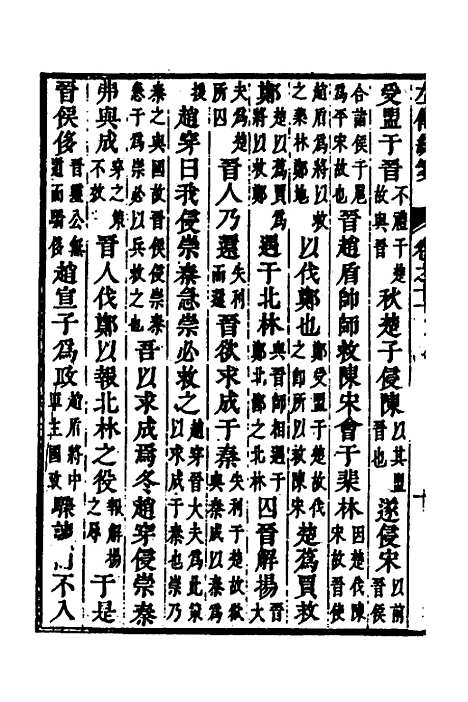 受盟于晉不禮于楚故與晉秋楚子侵陳以其盟晉也遂侵宋以前晉侯
合諸侯于扈為平宋故也晉趙盾帥師救陳宋會于棐林因楚伐陳宋故晉使
趙盾為將以救之棐林鄭地以伐鄭也鄭受盟于楚故伐之即所以救陳宋楚蒍賈救
鄭楚以蒍賈為將以救鄭遇于北林與晉師相遇于鄭北鄙之北林囚晉解揚晉大
夫為楚所囚晉人乃還失利而還晉欲求成于秦失利于楚故欲與秦成以秦為
援趙穿曰我侵崇秦急崇必救之趙穿晉大夫為此策以求成于秦也崇乃
秦之與國故晉侵崇秦急于為崇必以兵救之也吾以求成焉冬趙穿侵崇秦
弗與成穿之策不效晉人伐鄭以報北林之役報解揚之辱于是
晉侯侈晉靈公無道而驕侈趙宣子為政趙盾將中軍主國政驟諫不入